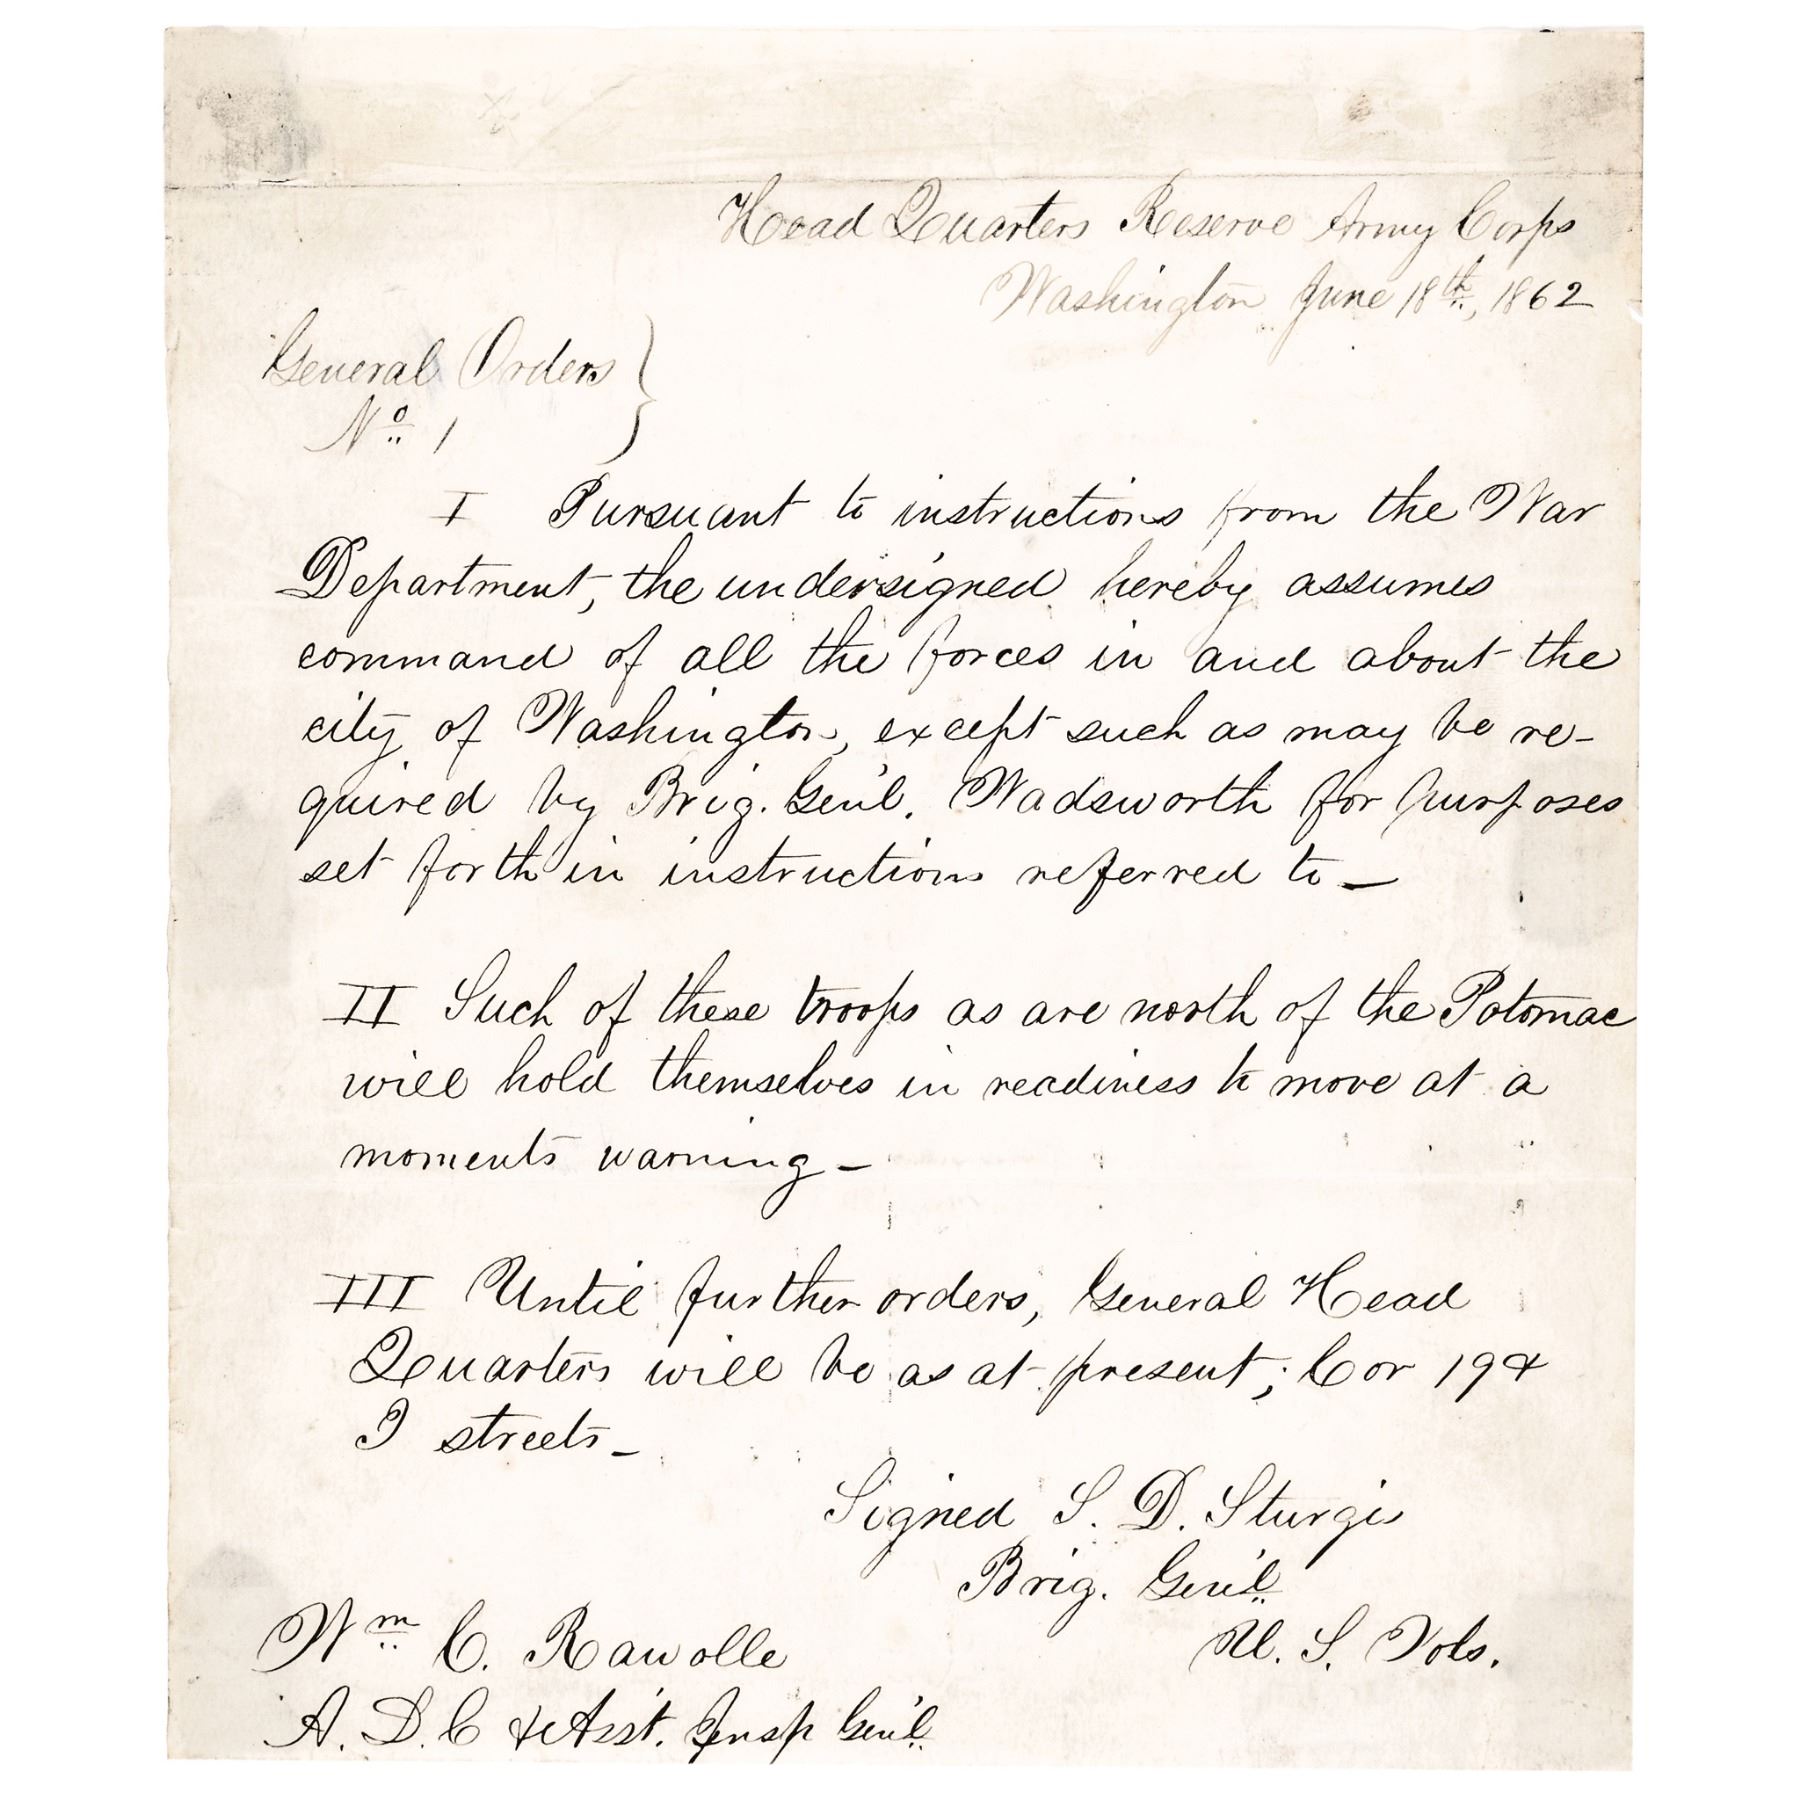 Head Quarters Reserve Army Corps
Washington June 18th, 1862
General Orders
No 1
I Pursuant to instructions from the War
Department, the undersigned hereby assumes
command of all the forces in and about the
city of Washington, except such as may be re-
quired by Brig. Gen'l. Wadsworth for purposes
set forth in instructions referred to—
II Such of these troops as are north of the Potomac
will hold themselves in readiness to move at a
moments warning—
III Until further orders, General Head
Quarters will be as at present; Cor 19 &
I streets—
Signed S. D. Sturgis
Brig. Gen'l
U. S. Vols.
Wm C. Rawolle
A. D. C & Ass't. Insp Gen'l.